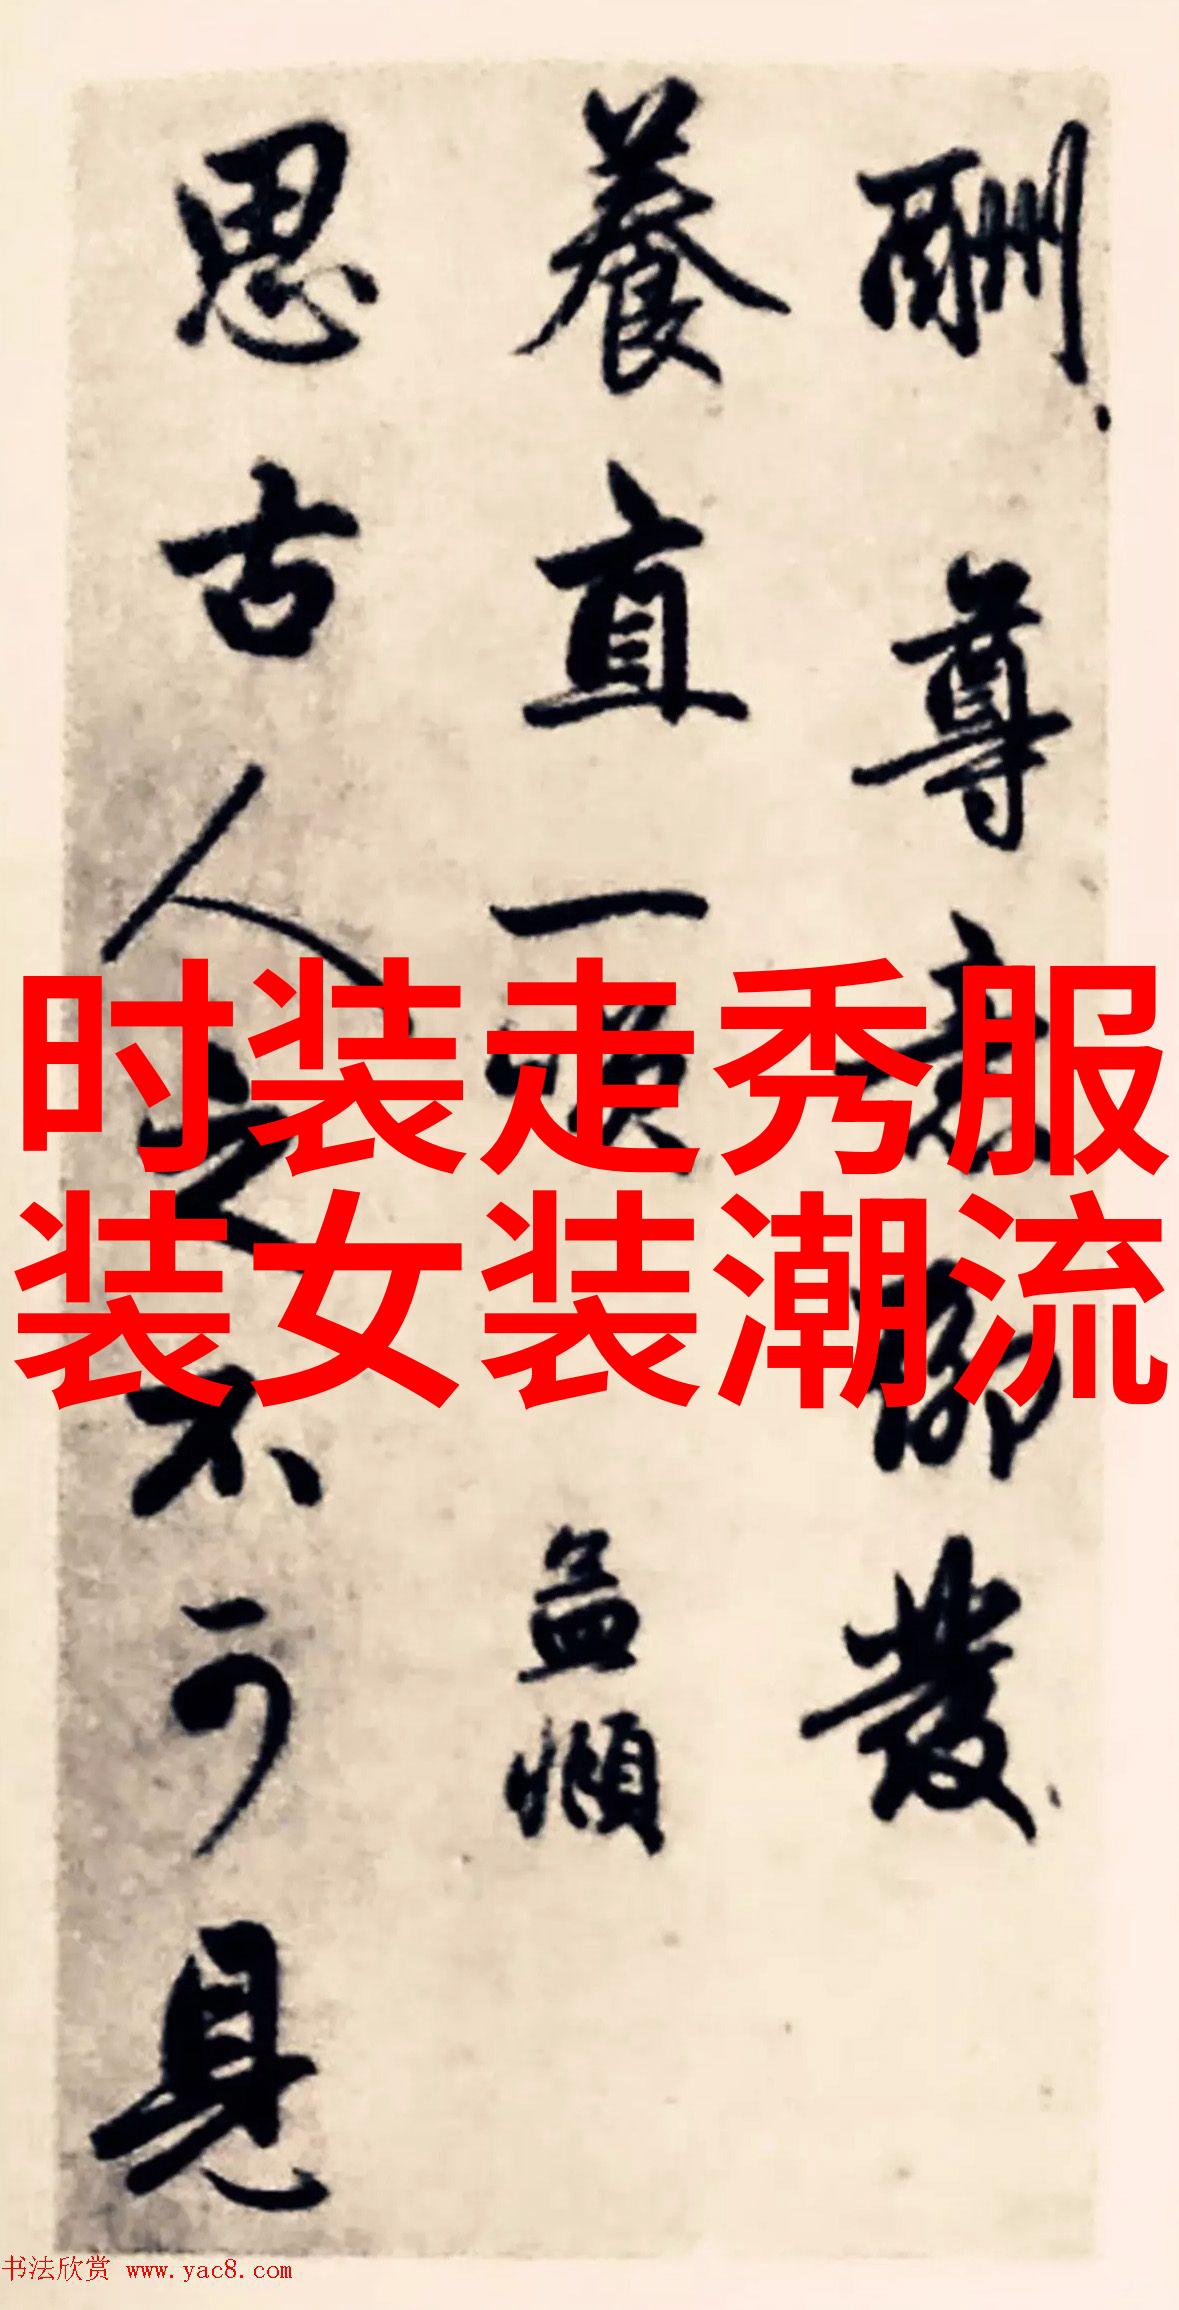 酬尊意聊發
養直一
孟頫
思古人之不可見
时装走秀服
装女装潮流
书法欣赏 www.yac8.com